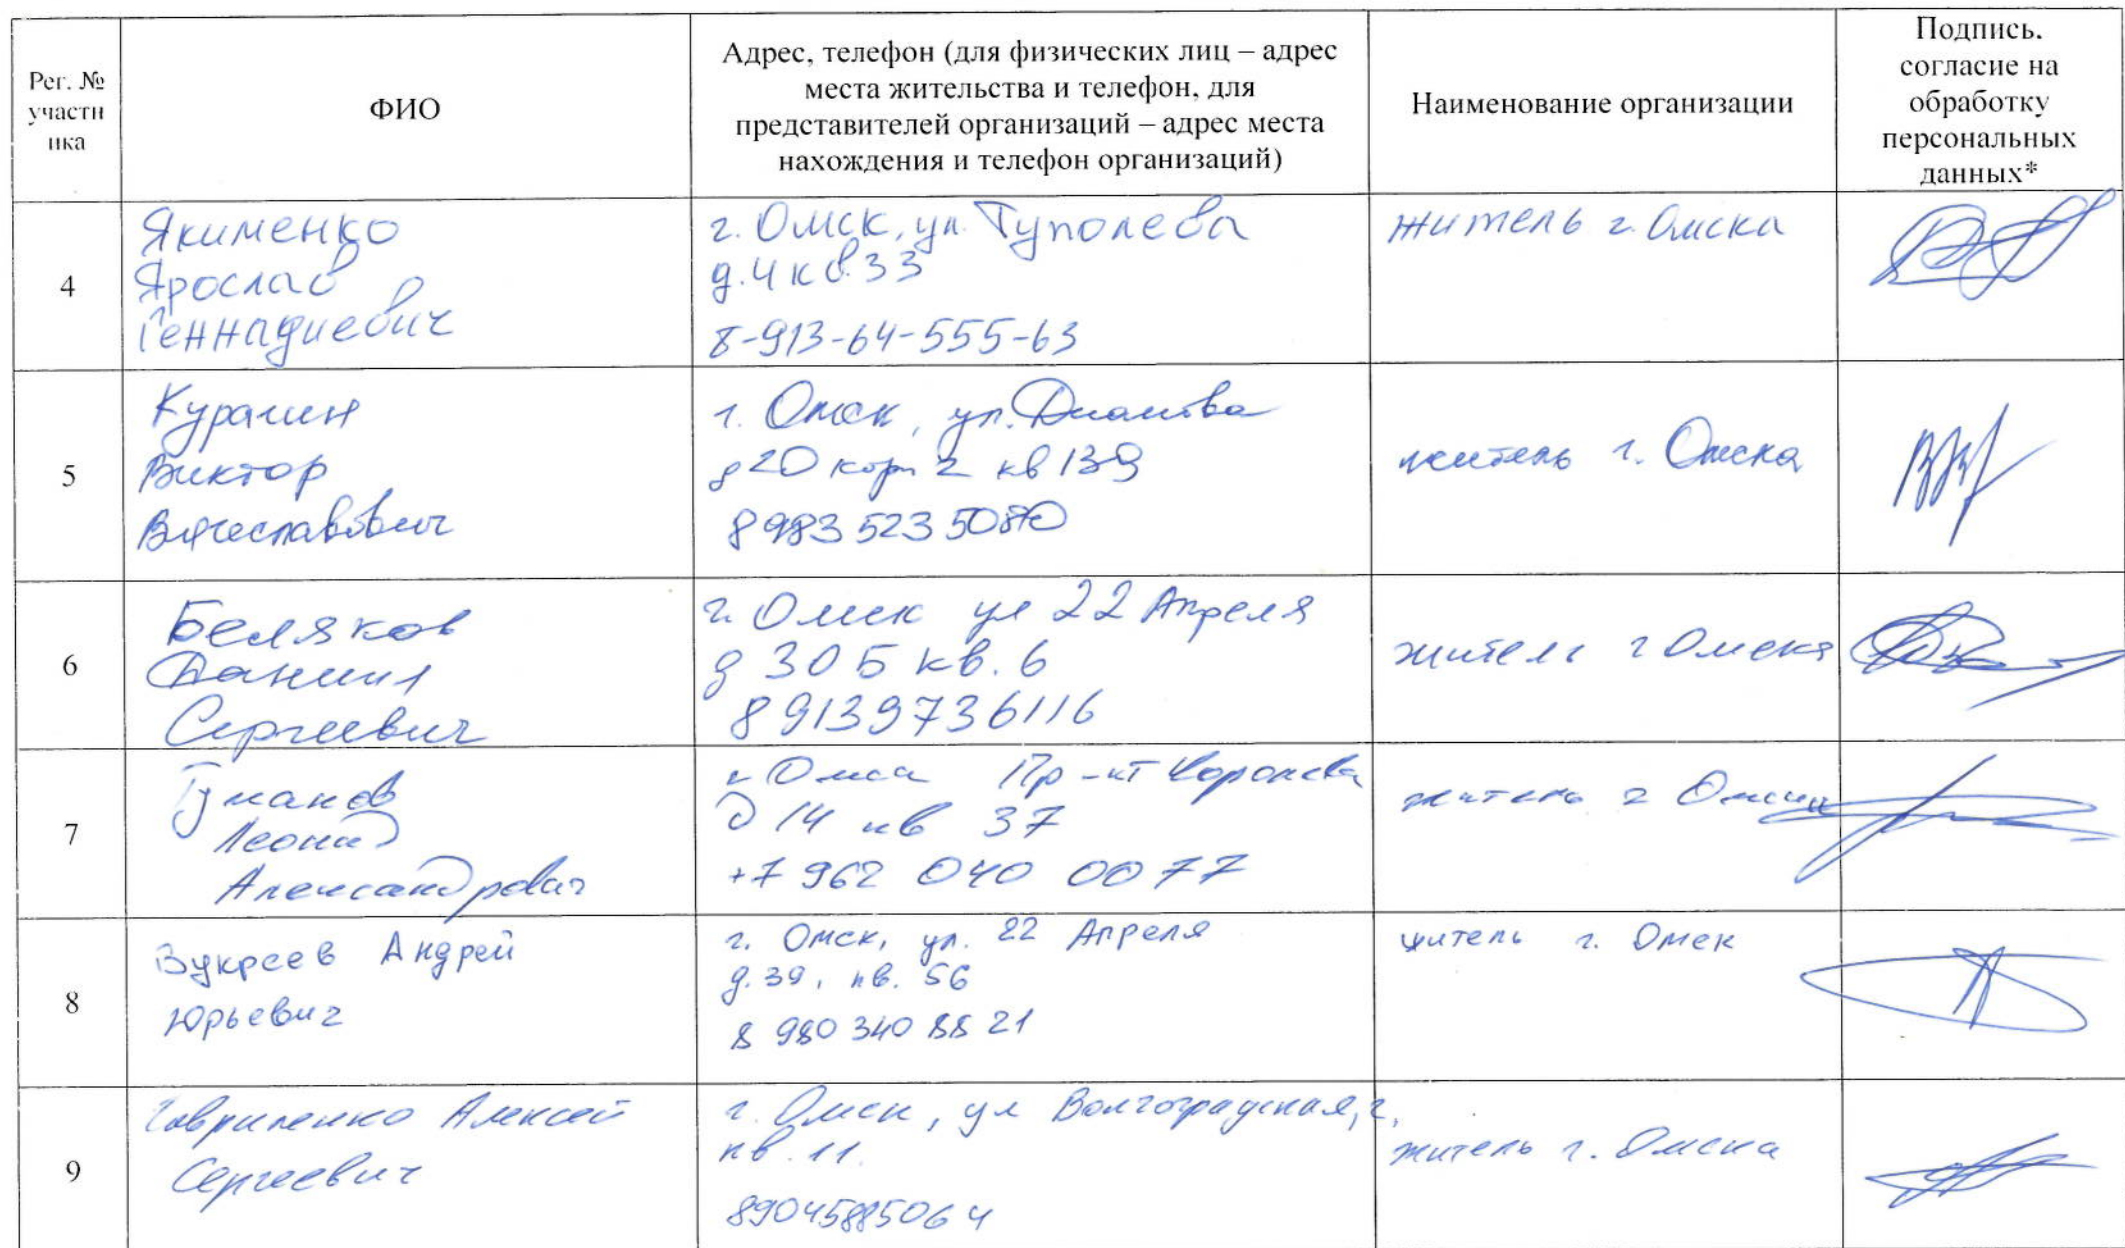 Рег. №
участн
ика
ФИО
Адрес, телефон (для физических лиц – адрес
места жительства и телефон, для
представителей организаций – адрес места
нахождения и телефон организаций)
Наименование организации
Подпись.
согласие на
обработку
персональных
данных*
4
Якименко
Ярослав
Геннадиевич
г. Омск, ул. Туполева
д. 4 кв. 33
8-913-64-555-63
житель г. Омска
5
Виктор
Вячеславович
г. Омск, ул. Дианова
д 20 корп 2 кв 139
8983 523 50
житель г. Омска
6
Беляков
Даниил
Сергеевич
г. Омск ул 22 Апреля
д 30 Б кв. 6
89139736116
житель г Омска
7
Туманов
Леонид
Александрович
г Омск Пр-кт Королева
д 14 кв 37
+7 962 040 00 77
житель г Омска
8
Вукреев Андрей
Юрьевич
г. Омск, ул. 22 Апреля
д. 39, кв. 56
8 980 340 88 21
житель г. Омск
9
Гавриленко Алексей
Сергеевич
г. Омск, ул Волгоградская, 2,
кв. 11.
89045885064
житель г. Омска